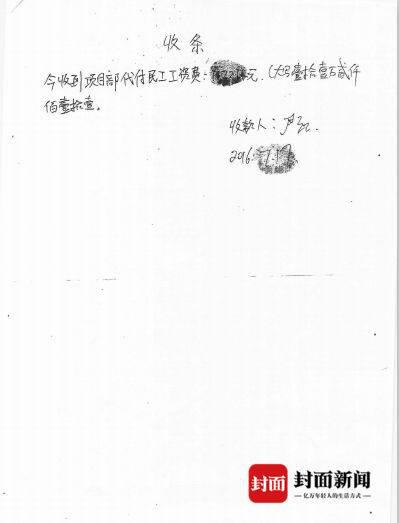 收条
今收到项目部代付民工工资费：元.（大写壹拾壹万贰仟
佰壹拾壹。
收款人：
2016.
封面 封面新闻
—亿万年轻人的生活方式—